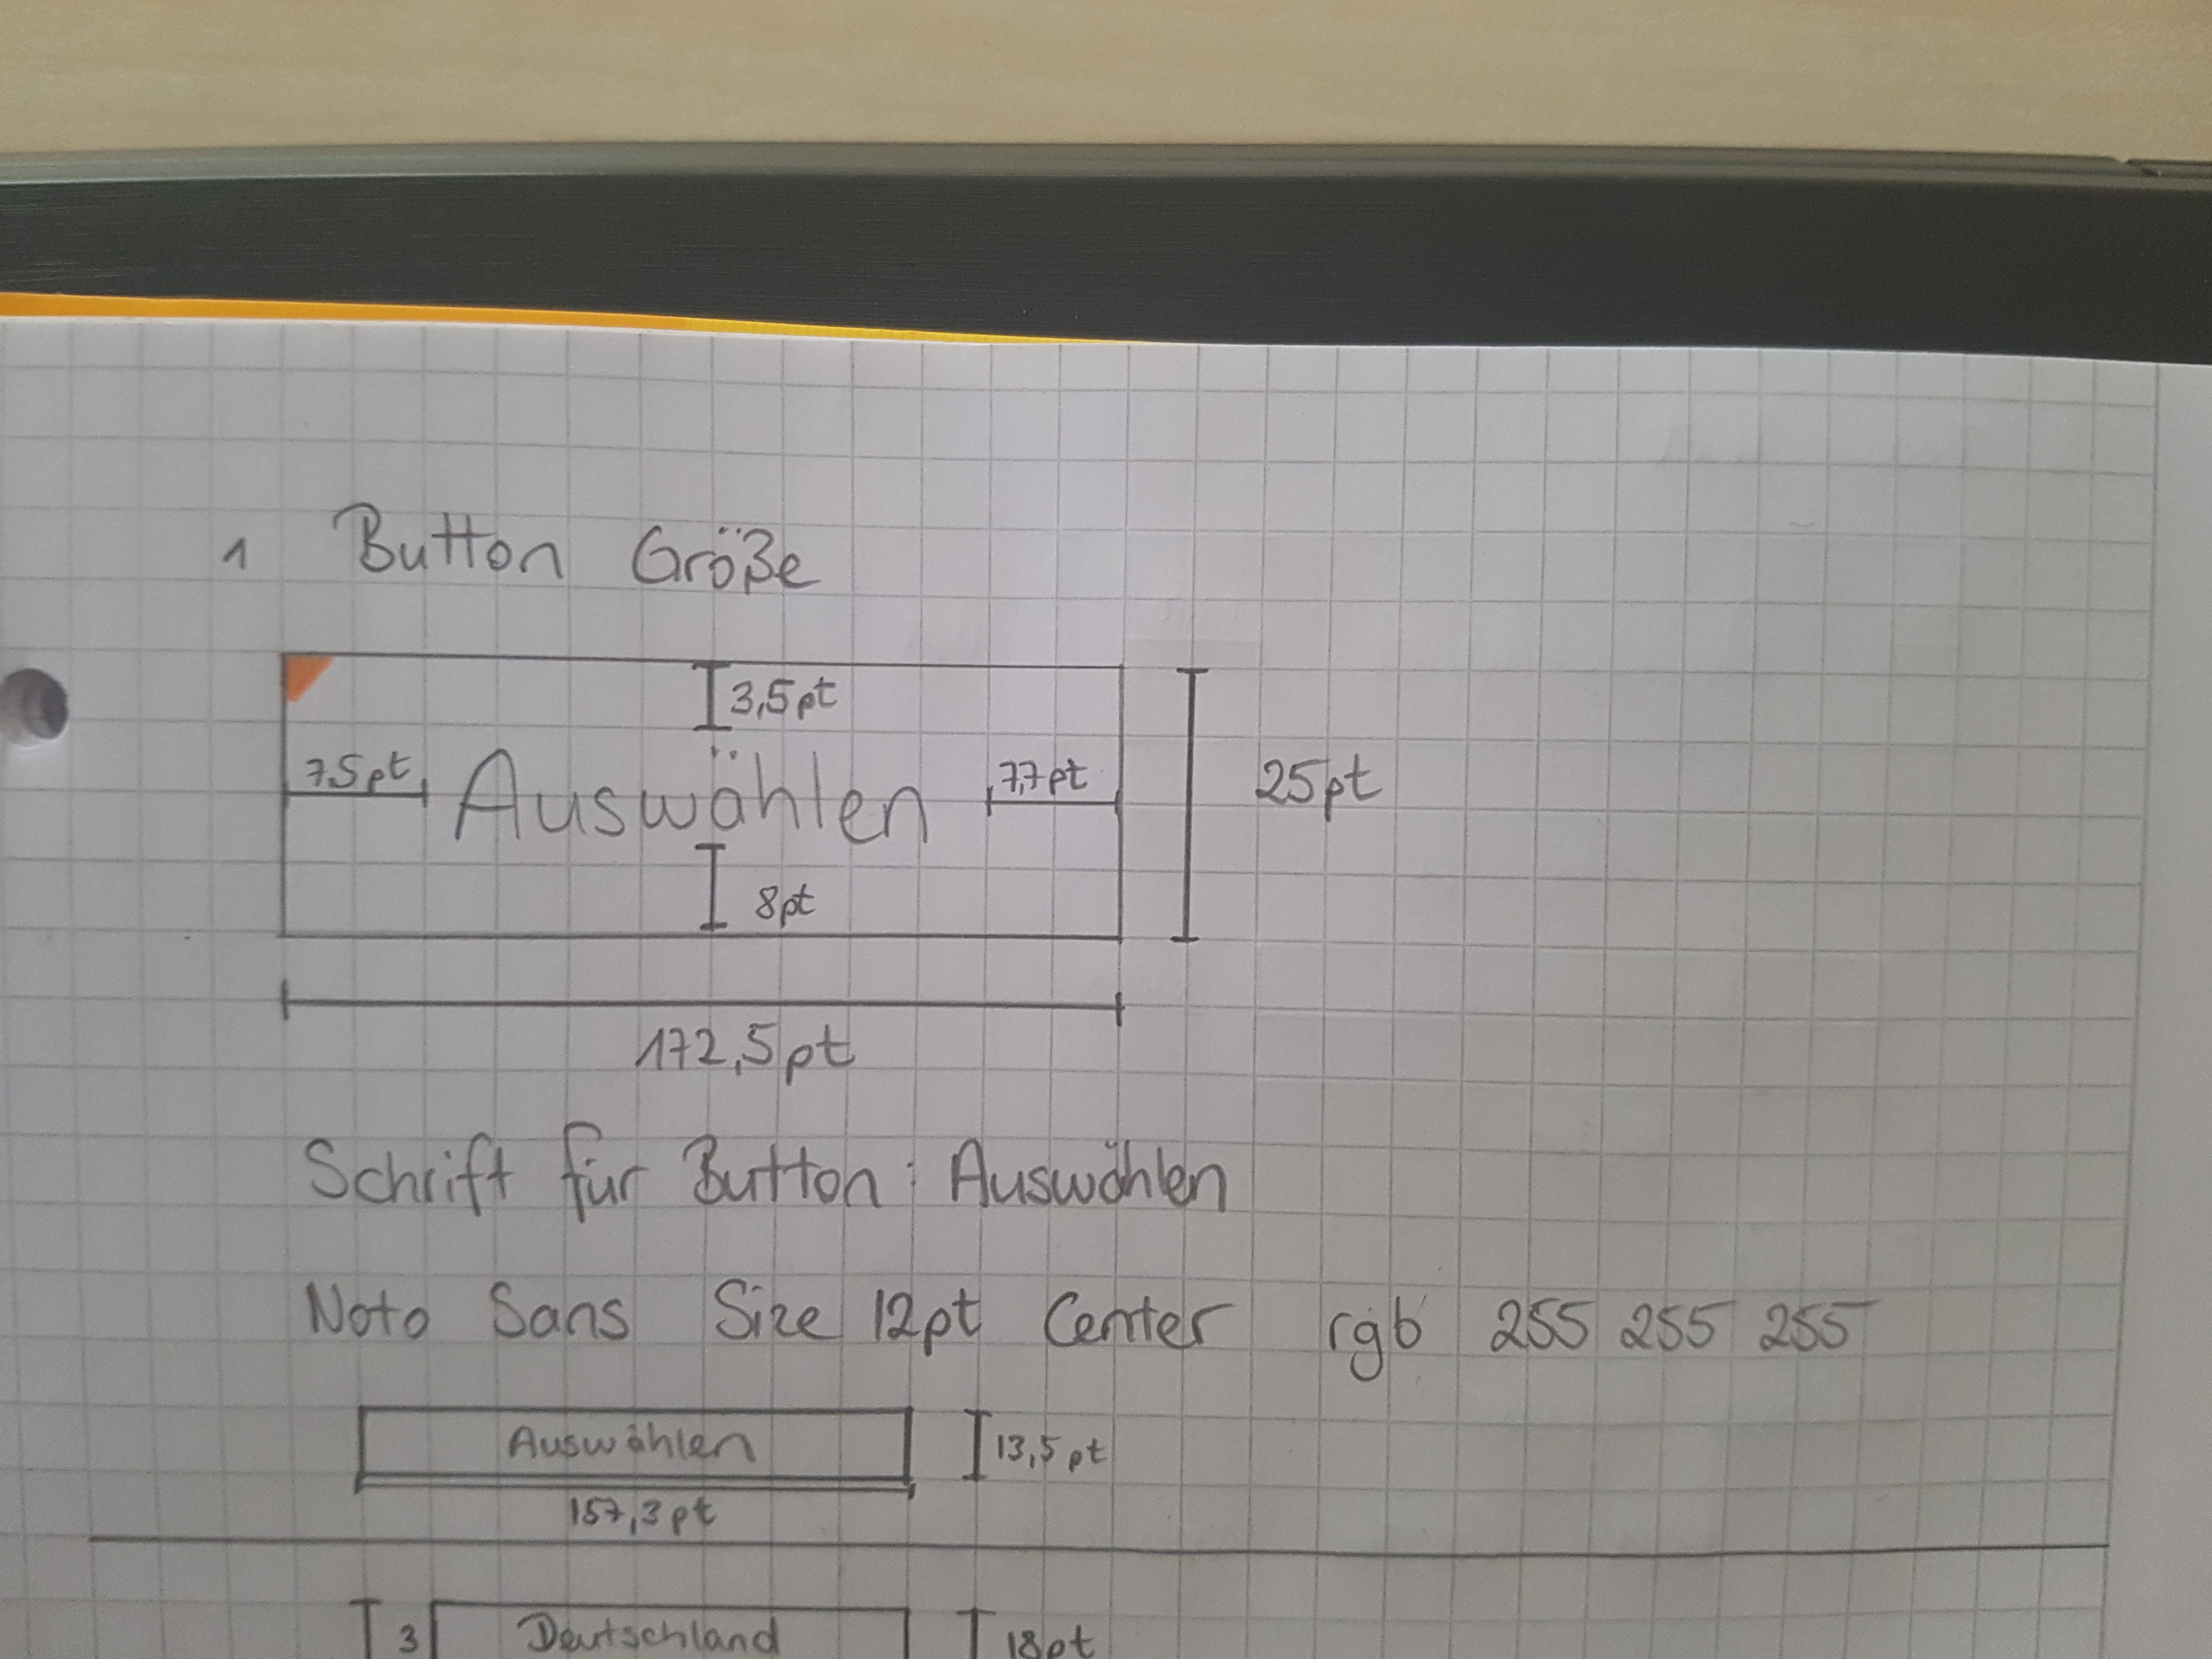 1 Button Größe
3,5pt
7,5pt Auswählen 7,7pt 25pt
8pt
172,5pt
Schrift für Button: Auswählen
Noto Sans Size 12pt Center rgb 255 255 255
Auswählen 13,5pt
157,3pt
3 Deutschland 18pt